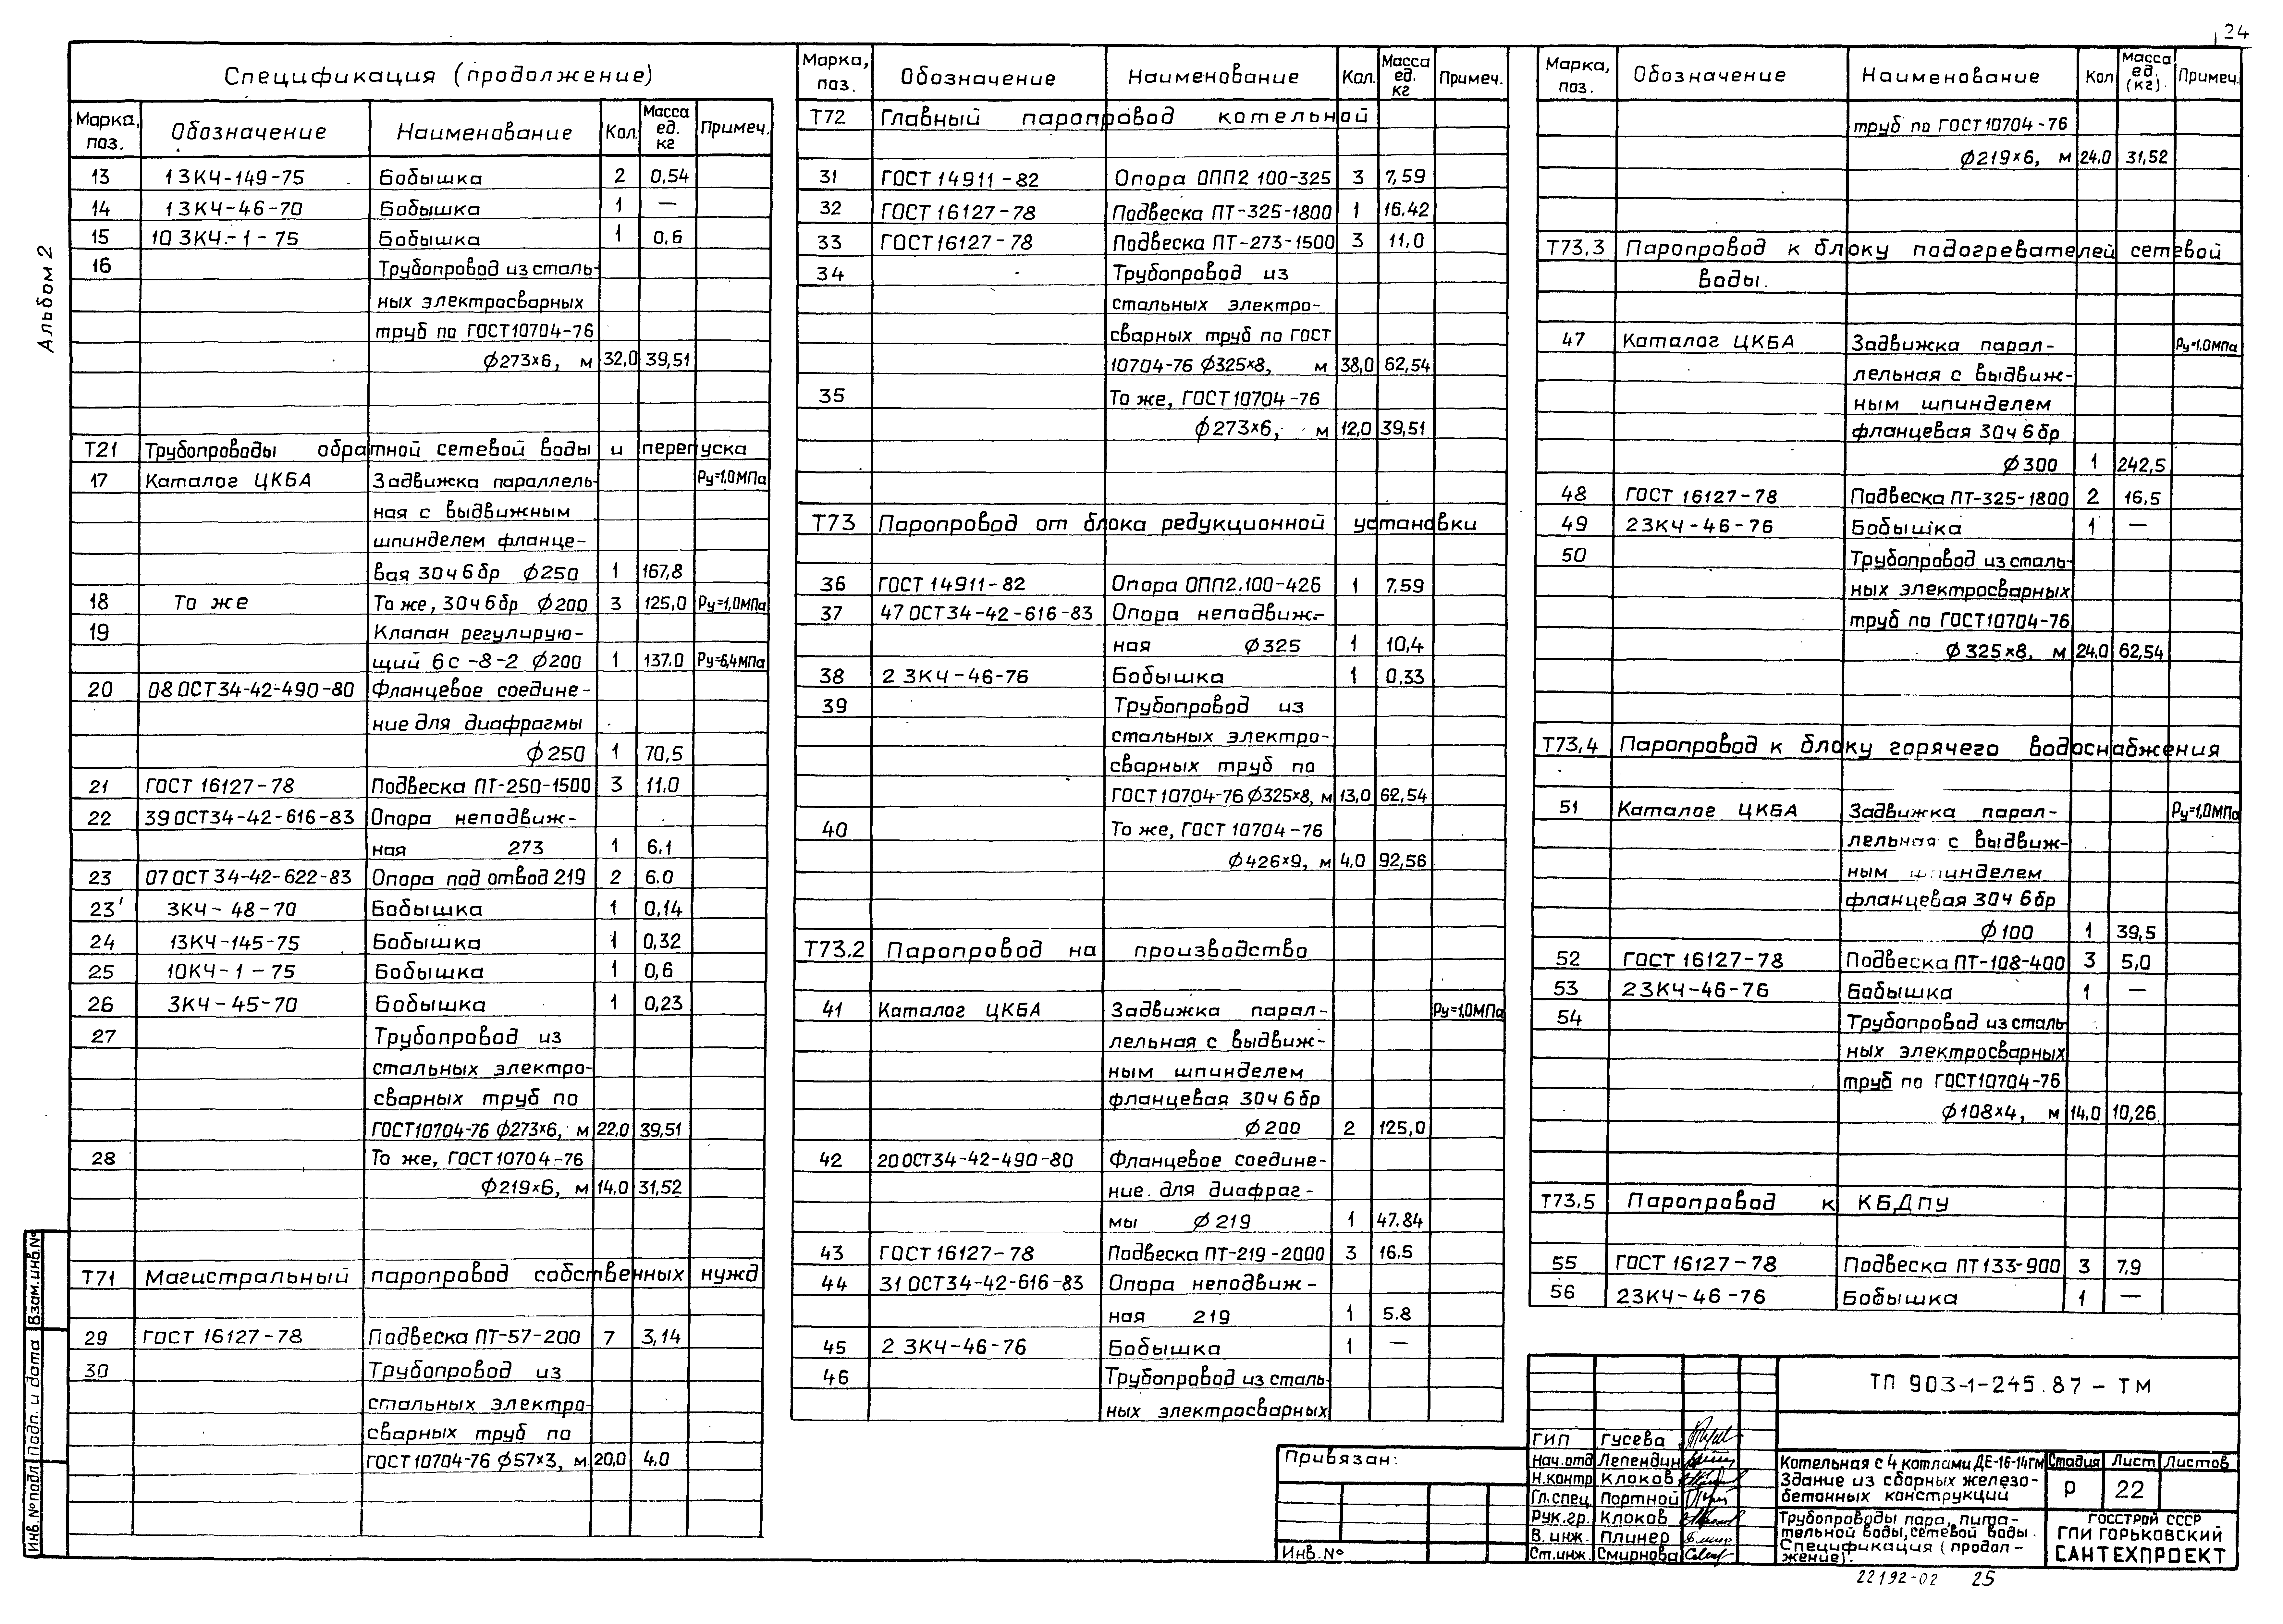 24
Альбом 2
Спецификация (продолжение)
Марка, поз. Обозначение Наименование Кол. Масса ед. кг Примеч.
13 13КЧ-149-75 Бобышка 2 0,54
14 13КЧ-46-70 Бобышка 1 —
15 10 3КЧ-1-75 Бобышка 1 0,6
16 Трубопровод из сталь-
ных электросварных
труб по ГОСТ10704-76
Ф273×6, м 32,0 39,51
Т21 Трубопроводы обратной сетевой воды и перепуска
17 Каталог ЦКБА Задвижка параллель- Ру=1,0МПа
ная с выдвижным
шпинделем фланце-
вая 30ч6бр Ф250 1 167,8
18 То же То же, 30ч6бр Ф200 3 125,0 Ру=1,0МПа
19 Клапан регулирую-
щий 6с-8-2 Ф200 1 137.0 Ру=6,4МПа
20 08 ОСТ34-42-490-80 Фланцевое соедине-
ние для диафрагмы
Ф250 1 70,5
21 ГОСТ 16127-78 Подвеска ПТ-250-1500 3 11.0
22 39 ОСТ34-42-616-83 Опора неподвиж-
ная 273 1 6.1
23 07 ОСТ 34-42-622-83 Опора под отвод 219 2 6.0
23' 3КЧ-48-70 Бобышка 1 0,14
24 13КЧ-145-75 Бобышка 1 0,32
25 10КЧ-1-75 Бобышка 1 0,6
26 3КЧ-45-70 Бобышка 1 0,23
27 Трубопровод из
стальных электро-
сварных труб по
ГОСТ10704-76 Ф273×6, м 22,0 39,51
28 То же, ГОСТ10704-76
Ф219×6, м 14,0 31,52
Т71 Магистральный паропровод собственных нужд
29 ГОСТ 16127-78 Подвеска ПТ-57-200 7 3,14
30 Трубопровод из
стальных электро-
сварных труб по
ГОСТ10704-76 Ф57×3, м 20,0 4.0
Марка, поз. Обозначение Наименование Кол. Масса ед. кг Примеч.
Т72 Главный паропровод котельной
31 ГОСТ 14911-82 Опора ОПП2 100-325 3 7,59
32 ГОСТ 16127-78 Подвеска ПТ-325-1800 1 16.42
33 ГОСТ16127-78 Подвеска ПТ-273-1500 3 11,0
34 Трубопровод из
стальных электро-
сварных труб по ГОСТ
10704-76 Ф325×8, м 38,0 62,54
35 То же, ГОСТ10704-76
Ф273×6, м 12,0 39,51
Т73 Паропровод от блока редукционной установки
36 ГОСТ 14911-82 Опора ОПП2.100-426 1 7,59
37 47 ОСТ34-42-616-83 Опора неподвиж-
ная Ф325 1 10,4
38 2 3КЧ-46-76 Бобышка 1 0,33
39 Трубопровод из
стальных электро-
сварных труб по
ГОСТ10704-76 Ф325×8, м 13,0 62,54
40 То же, ГОСТ 10704-76
Ф426×9, м 4.0 92,56
Т73.2 Паропровод на производство
41 Каталог ЦКБА Задвижка парал- Ру=1,0МПа
лельная с выдвиж-
ным шпинделем
фланцевая 30ч6бр
Ф200 2 125,0
42 20 ОСТ34-42-490-80 Фланцевое соедине-
ние для диафраг-
мы Ф219 1 47.84
43 ГОСТ 16127-78 Подвеска ПТ-219-2000 3 16.5
44 31 ОСТ34-42-616-83 Опора неподвиж-
ная 219 1 5.8
45 2 3КЧ-46-76 Бобышка 1 —
46 Трубопровод из сталь-
ных электросварных
Марка, поз. Обозначение Наименование Кол Масса ед. (кг) Примеч.
труб по ГОСТ10704-76
Ф219×6, м 24.0 31,52
Т73,3 Паропровод к блоку подогревателей сетевой
воды.
47 Каталог ЦКБА Задвижка парал- Ру=1.0МПа
лельная с выдвиж-
ным шпинделем
фланцевая 30ч6бр
Ф300 1 242,5
48 ГОСТ 16127-78 Подвеска ПТ-325-1800 2 16,5
49 23КЧ-46-76 Бобышка 1 —
50 Трубопровод из сталь-
ных электросварных
труб по ГОСТ10704-76
Ф325×8, м 24.0 62,54
Т73,4 Паропровод к блоку горячего водоснабжения
51 Каталог ЦКБА Задвижка парал- Ру=1,0МПа
лельная с выдвиж-
ным шпинделем
фланцевая 30ч6бр
Ф100 1 39,5
52 ГОСТ 16127-78 Подвеска ПТ-108-400 3 5,0
53 23КЧ-46-76 Бобышка 1 —
54 Трубопровод из сталь
ных электросварных
труб по ГОСТ10704-76
Ф108×4, м 14.0 10,26
Т73,5 Паропровод к КБДПУ
55 ГОСТ 16127-78 Подвеска ПТ133-900 3 7,9
56 23КЧ-46-76 Бобышка 1 —
ТП 903-1-245.87-ТМ
Привязан:
Инв.№
ГИП Гусева
Нач.отд Лепендин
Н.контр Клоков
Гл.спец. Портной
Рук.гр. Клоков
В.инж. Плинер
Ст.инж. Смирнова
Котельная с 4 котлами ДЕ-16-14ГМ
Здание из сборных железо-
бетонных конструкций
Стадия Лист Листов
Р 22
Трубопроводы пара, пита-
тельной воды, сетевой воды.
Спецификация (продол-
жение).
ГОССТРОЙ СССР
ГПИ ГОРЬКОВСКИЙ
САНТЕХПРОЕКТ
22192-02 25
Взам.инв.№
Подп. и дата
Инв.№подл